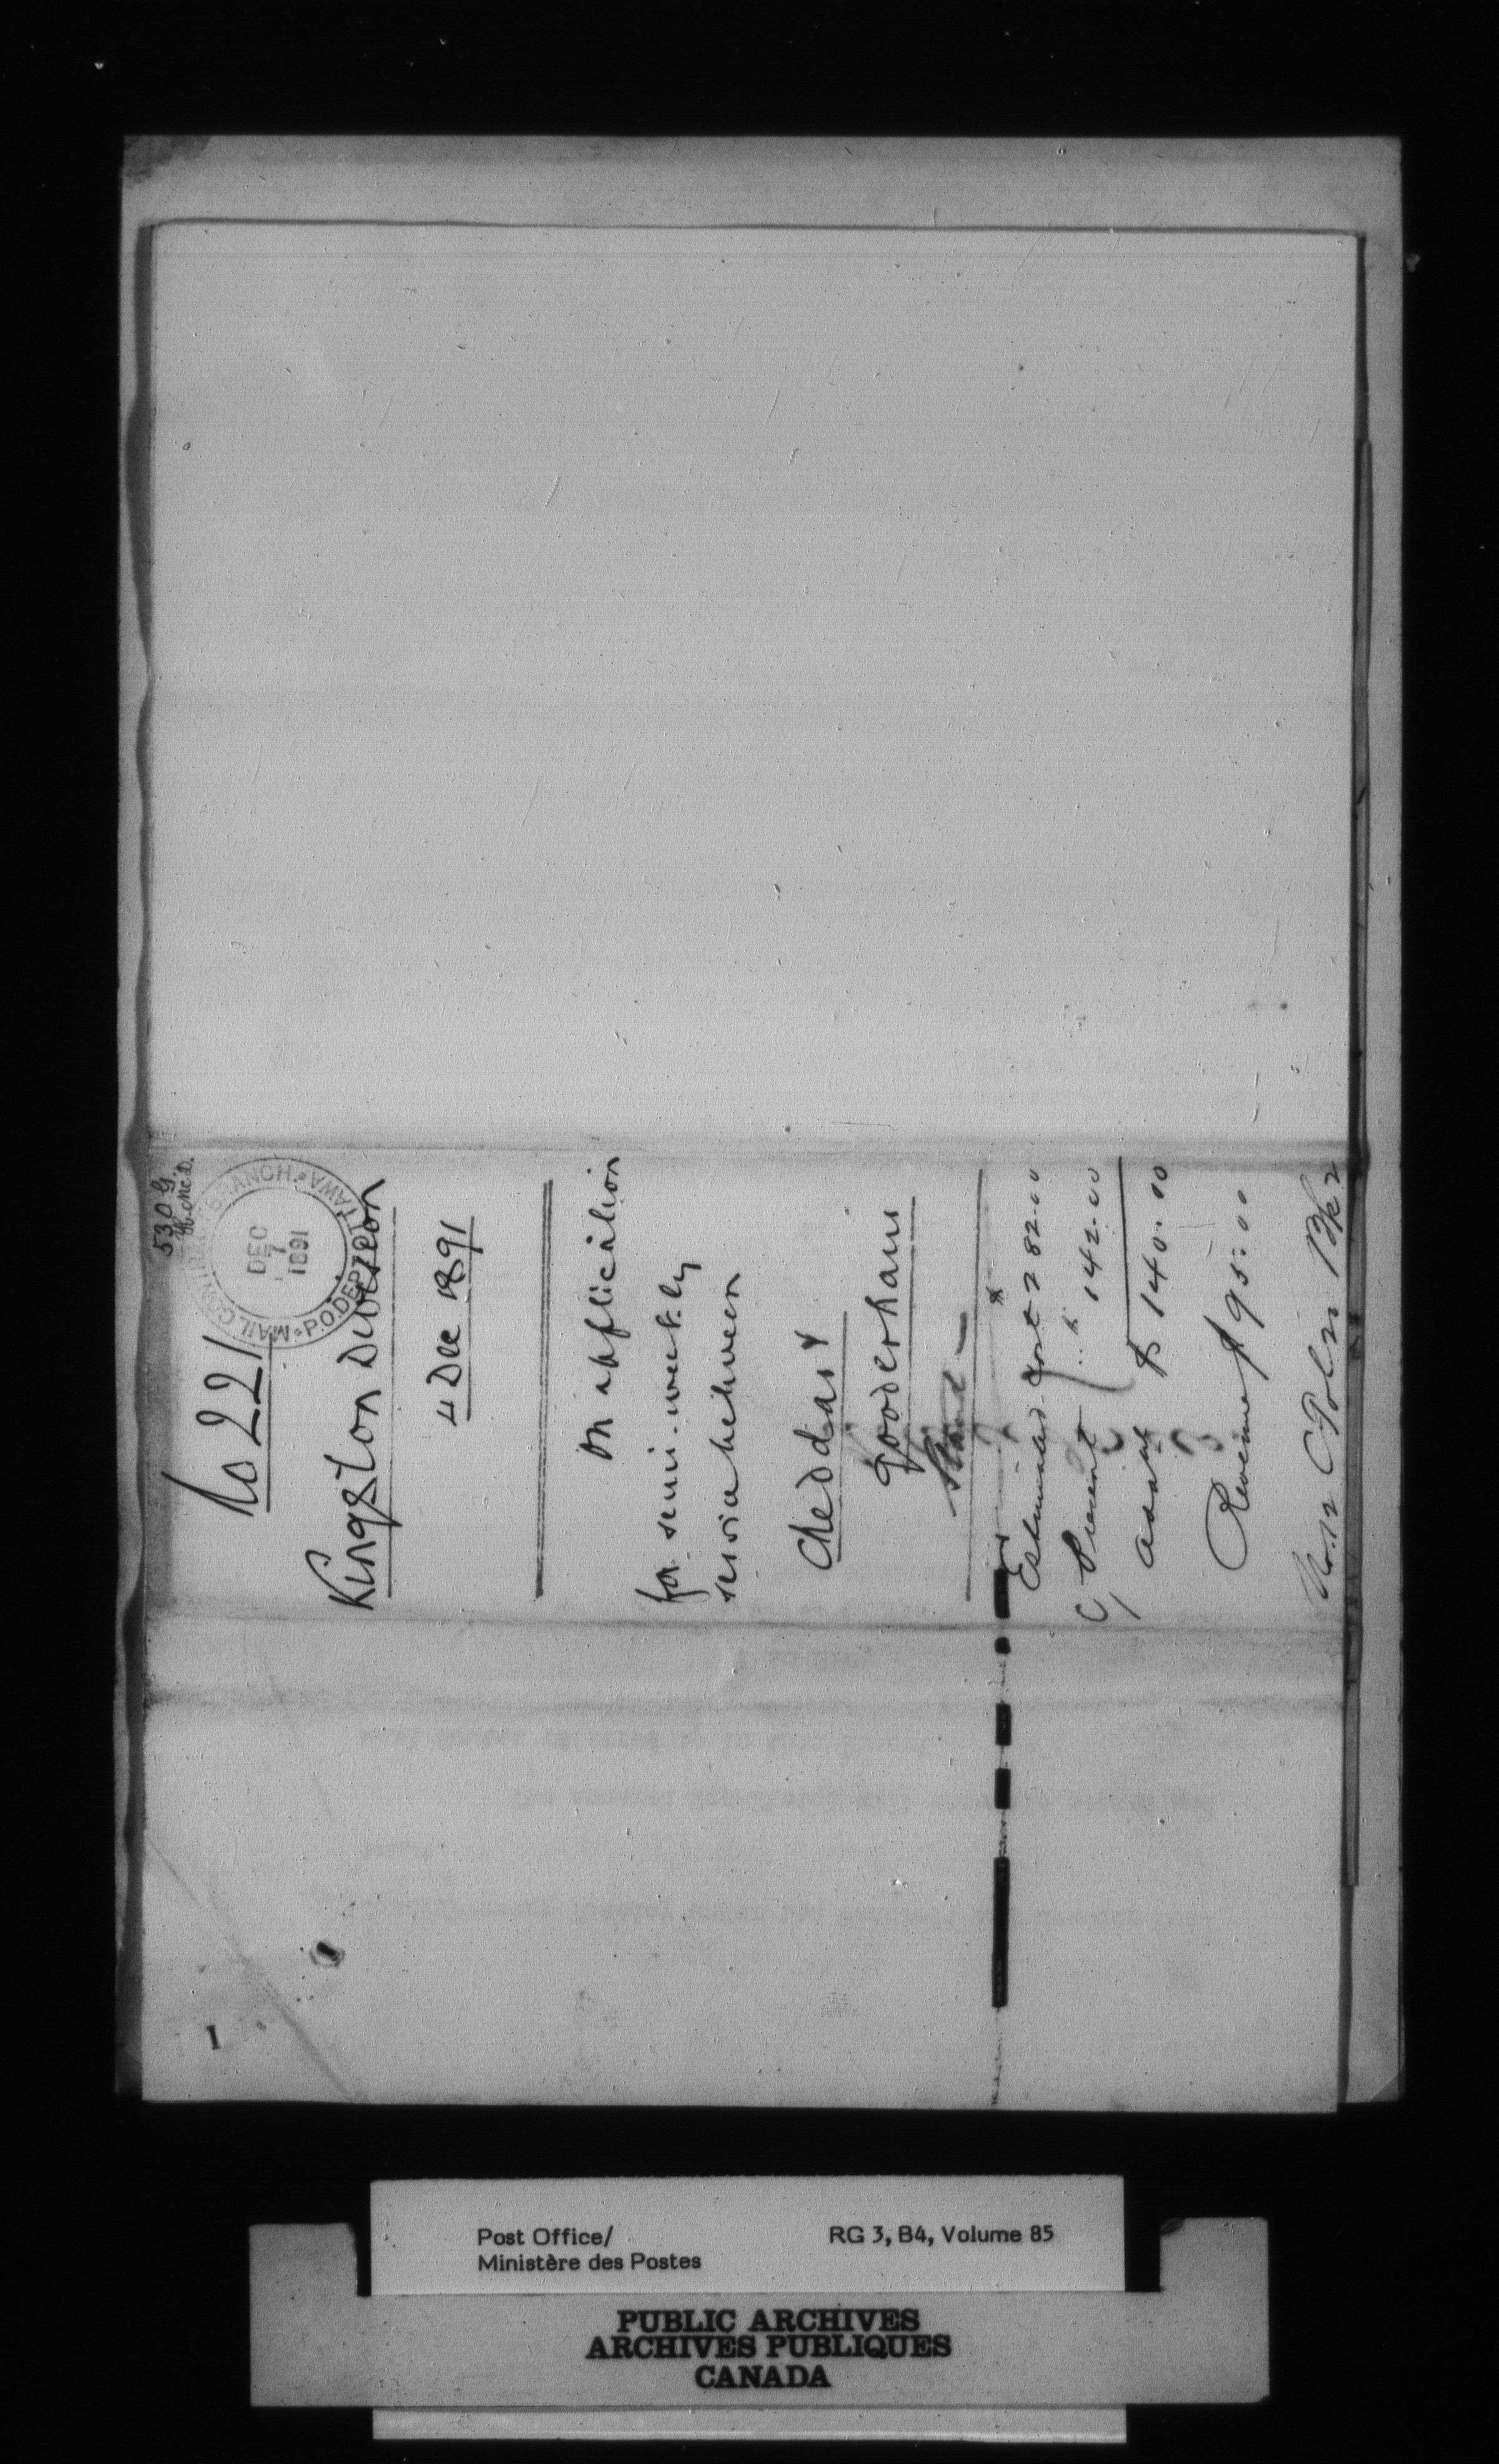 530 G.
W. McD.
MAIL CONTRACT BRANCH • P.O. DEPT. OTTAWA •
DEC
7
1891
No 221
Kingston Division
4 Dec 1891
On application
for semi-weekly
service between
Cheddar &
Gooderham
Estimated Cost 282.00
Present " 142.00
Addtl $ 140.00
Revenue $ 95.00
1
Post Office/
Ministère des Postes
RG 3, B4, Volume 85
PUBLIC ARCHIVES
ARCHIVES PUBLIQUES
CANADA